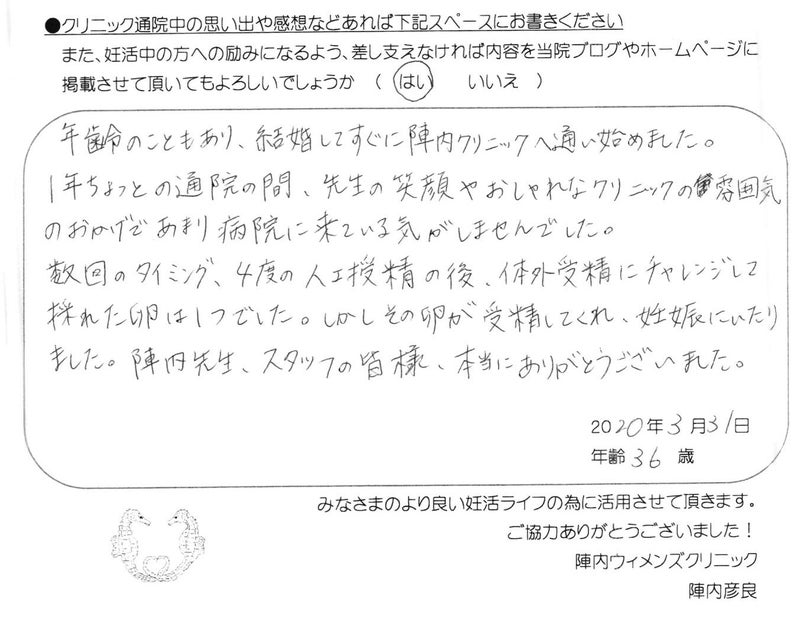 ●クリニック通院中の思い出や感想などあれば下記スペースにお書きください
また、妊活中の方への励みになるよう、差し支えなければ内容を当院ブログやホームページに
掲載させて頂いてもよろしいでしょうか （ はい　いいえ ）
年齢のこともあり、結婚してすぐに陣内クリニックへ通い始めました。
1年ちょっとの通院の間、先生の笑顔やおしゃれなクリニックの雰囲気
のおかげであまり病院に来ている気がしませんでした。
数回のタイミング、4度の人工授精の後、体外受精にチャレンジして
採れた卵は1つでした。しかしその卵が受精してくれ、妊娠にいたり
ました。陣内先生、スタッフの皆様、本当にありがとうございました。
2020年3月31日
年齢36歳
みなさまのより良い妊活ライフの為に活用させて頂きます。
ご協力ありがとうございました！
陣内ウィメンズクリニック
陣内彦良